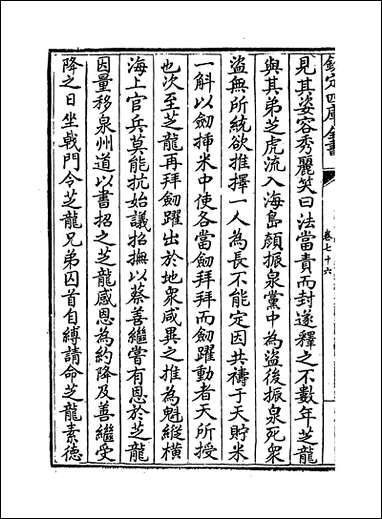 欽定四庫全書
卷七十六
見其姿容秀麗笑曰法當責而封遂釋之不數年芝龍
與其弟芝虎流入海島顏振泉黨中為盜後振泉死衆
盜無所統欲推擇一人為長不能定因共禱于天貯米
一斛以劒揷米中使各當劒拜拜而劒躍動者天所授
也次至芝龍再拜劒躍出於地衆咸異之推為魁縱橫
海上官兵莫能抗始議招撫以蔡善繼嘗有恩於芝龍
因量移泉州道以書招之芝龍感恩為約降及善繼受
降之日坐戟門令芝龍兄弟囚首自縛請命芝龍素德